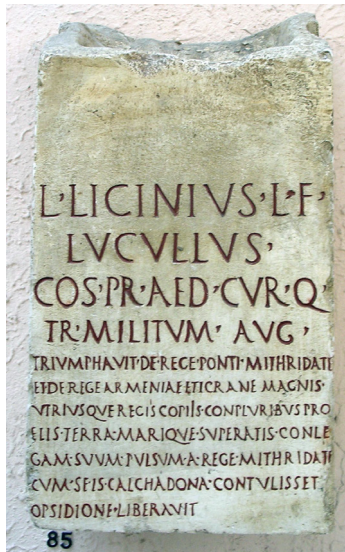 L·LICINIVS·L·F·
LVCVLLVS·
COS·PR·AED·CVR·Q
TR·MILITVM·AVG·
TRIVMPHAVIT·DE·REGE·PONTI·MITHRIDATE
ET·DE·REGE·ARMENIAE·TIGRANE·MAGNIS·
VTRIVSQVE·REGIS·COPIIS·CONPLVRIBVS·PRO
ELIS·TERRA·MARIQVE·SVPERATIS·CONLE
GAM·SVVM·PVLSVM·A·REGE·MITHRIDATE
CVM·SE·IS·CALCHADONA·CONTVLISSET
OPSIDIONE·LIBERAVIT
85